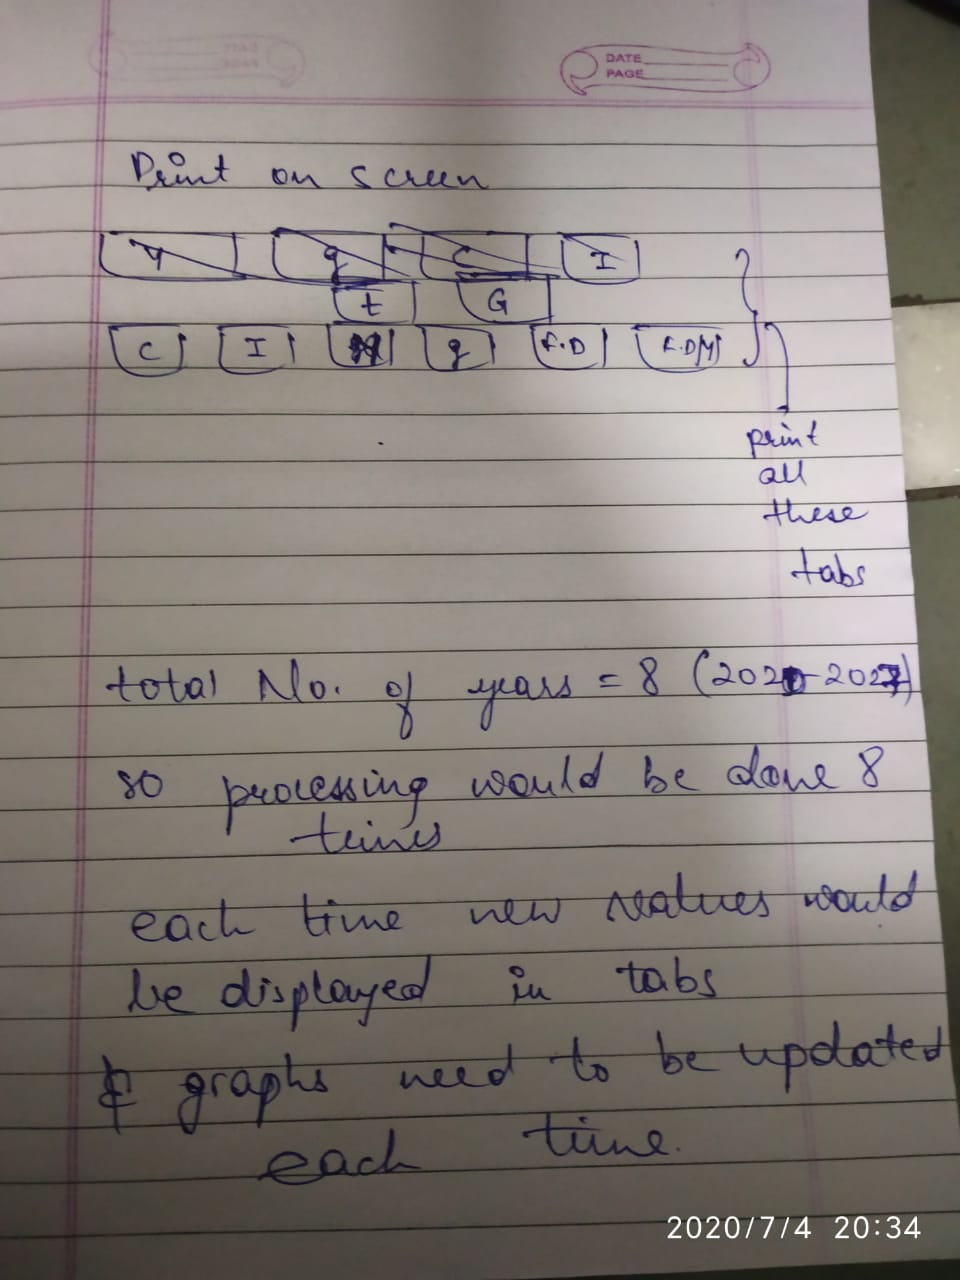 DATE
PAGE
Print on screen
Y q C I
t G
C I q F.D F.D/Y
print
all
these
tabs
total No. of years = 8 (2020-2027)
so processing would be done 8
times
each time new values would
be displayed in tabs
& graphs need to be updated
each time.
2020/7/4 20:34